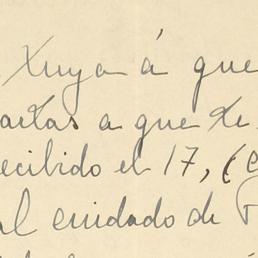 tuya á que
cartas a que te
recibido el 17, (e
al cuidado de